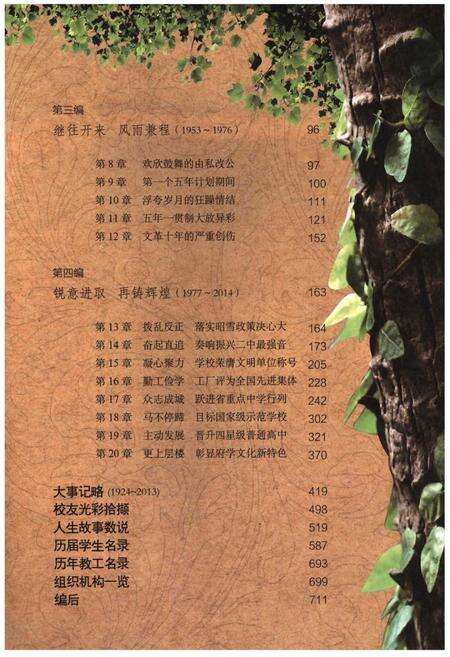 第三编
继往开来 风雨兼程(1953~1976) 96
第8章 欢欣鼓舞的由私改公 97
第9章 第一个五年计划期间 100
第10章 浮夸岁月的狂躁情结 111
第11章 五年一贯制大放异彩 121
第12章 文革十年的严重创伤 152
第四编
锐意进取 再铸辉煌(1977~2014) 163
第13章 拨乱反正 落实昭雪政策决心大 164
第14章 奋起直追 奏响振兴二中最强音 173
第15章 凝心聚力 学校荣膺文明单位称号 205
第16章 勤工俭学 工厂评为全国先进集体 228
第17章 众志成城 跃进省重点中学行列 242
第18章 马不停蹄 目标国家级示范学校 302
第19章 主动发展 晋升四星级普通高中 321
第20章 更上层楼 彰显府学文化新特色 370
大事记略(1924-2013) 419
校友光彩拾撷 498
人生故事数说 519
历届学生名录 587
历年教工名录 693
组织机构一览 699
编后 711